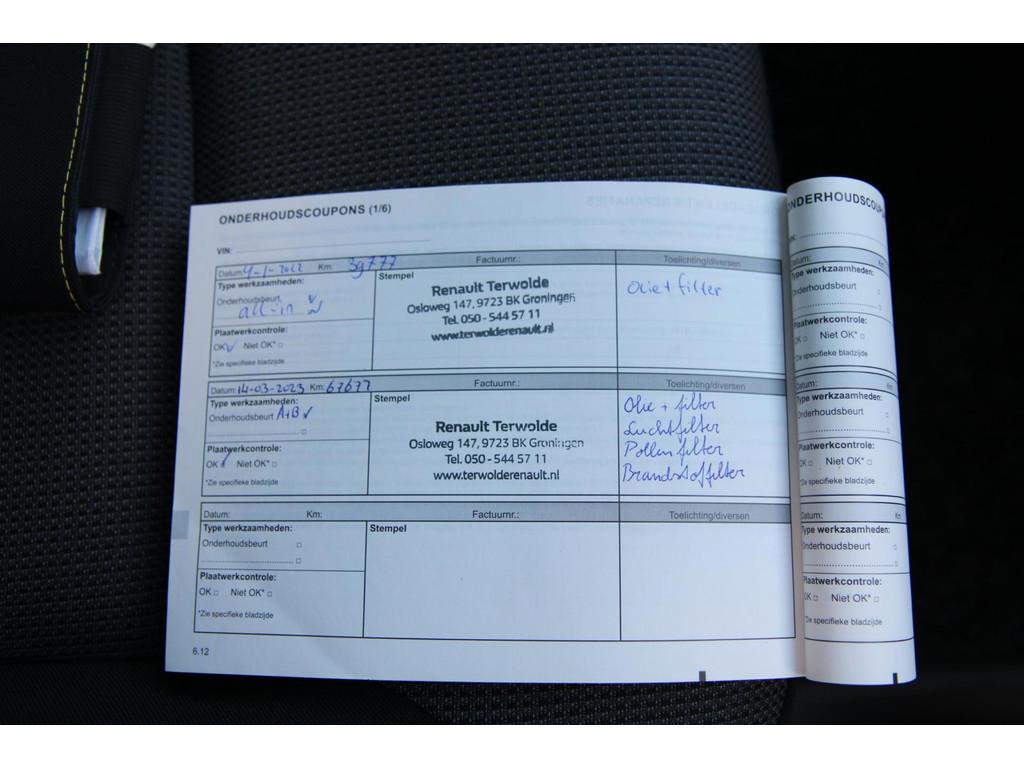 ONDERHOUDSCOUPONS (1/6)
VIN:
Datum: 4-1-2022 Km: 39777 Factuurnr.: Toelichting/diversen
Type werkzaamheden:
Onderhoudsbeurt
all-in
Plaatwerkcontrole:
OK Niet OK*
*Zie specifieke bladzijde
Stempel
Renault Terwolde
Osloweg 147, 9723 BK Groningen
Tel. 050 - 544 57 11
www.terwolderenault.nl
Olie + filter
Datum: 14-03-2023 Km: 67677 Factuurnr.: Toelichting/diversen
Type werkzaamheden:
Onderhoudsbeurt A+B
Plaatwerkcontrole:
OK Niet OK*
*Zie specifieke bladzijde
Stempel
Renault Terwolde
Osloweg 147, 9723 BK Groningen
Tel. 050 - 544 57 11
www.terwolderenault.nl
Olie + filter
Luchtfilter
Pollenfilter
Brandstoffilter
Datum: Km: Factuurnr.: Toelichting/diversen
Type werkzaamheden:
Onderhoudsbeurt
Plaatwerkcontrole:
OK Niet OK*
*Zie specifieke bladzijde
Stempel
6.12
ONDERHOUDSCOUP
Datum: Km
Type werkzaamheden:
Onderhoudsbeurt
Plaatwerkcontrole:
OK Niet OK*
*Zie specifieke bladzijde
Datum: Km
Type werkzaamheden:
Onderhoudsbeurt
Plaatwerkcontrole:
OK Niet OK*
*Zie specifieke bladzijde
Datum: Km
Type werkzaamheden:
Onderhoudsbeurt
Plaatwerkcontrole:
OK Niet OK*
*Zie specifieke bladzijde